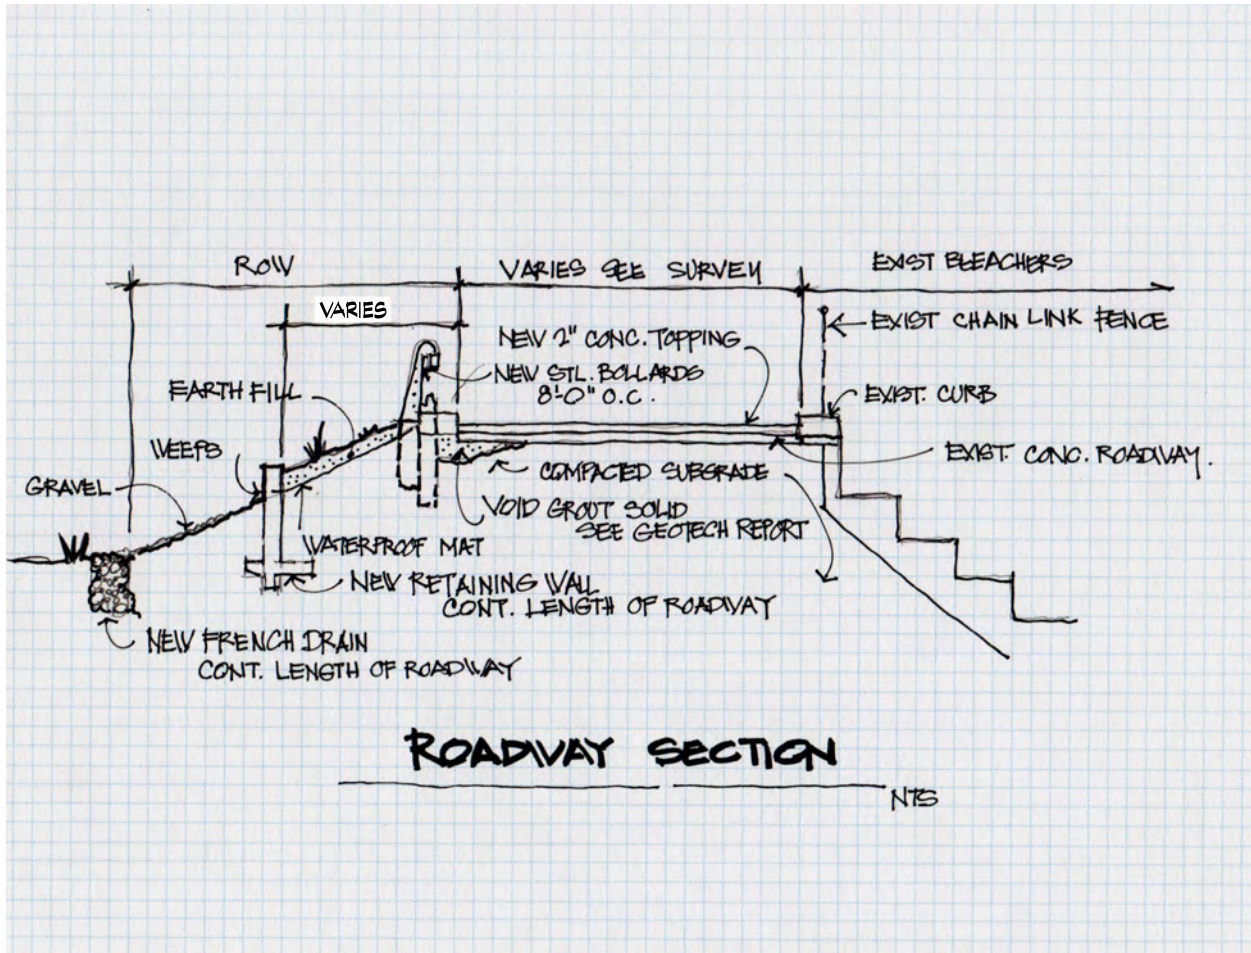 ROW
VARIES SEE SURVEY
EXIST BLEACHERS
VARIES
EXIST CHAIN LINK FENCE
NEW 2" CONC. TOPPING
NEW STL. BOLLARDS
8'-0" O.C.
EARTH FILL
EXIST. CURB
WEEPS
EXIST. CONC. ROADWAY.
COMPACTED SUBGRADE
GRAVEL
VOID GROUT SOLID
SEE GEOTECH REPORT
WATERPROOF MAT
NEW RETAINING WALL
CONT. LENGTH OF ROADWAY
NEW FRENCH DRAIN
CONT. LENGTH OF ROADWAY
ROADWAY SECTION
NTS